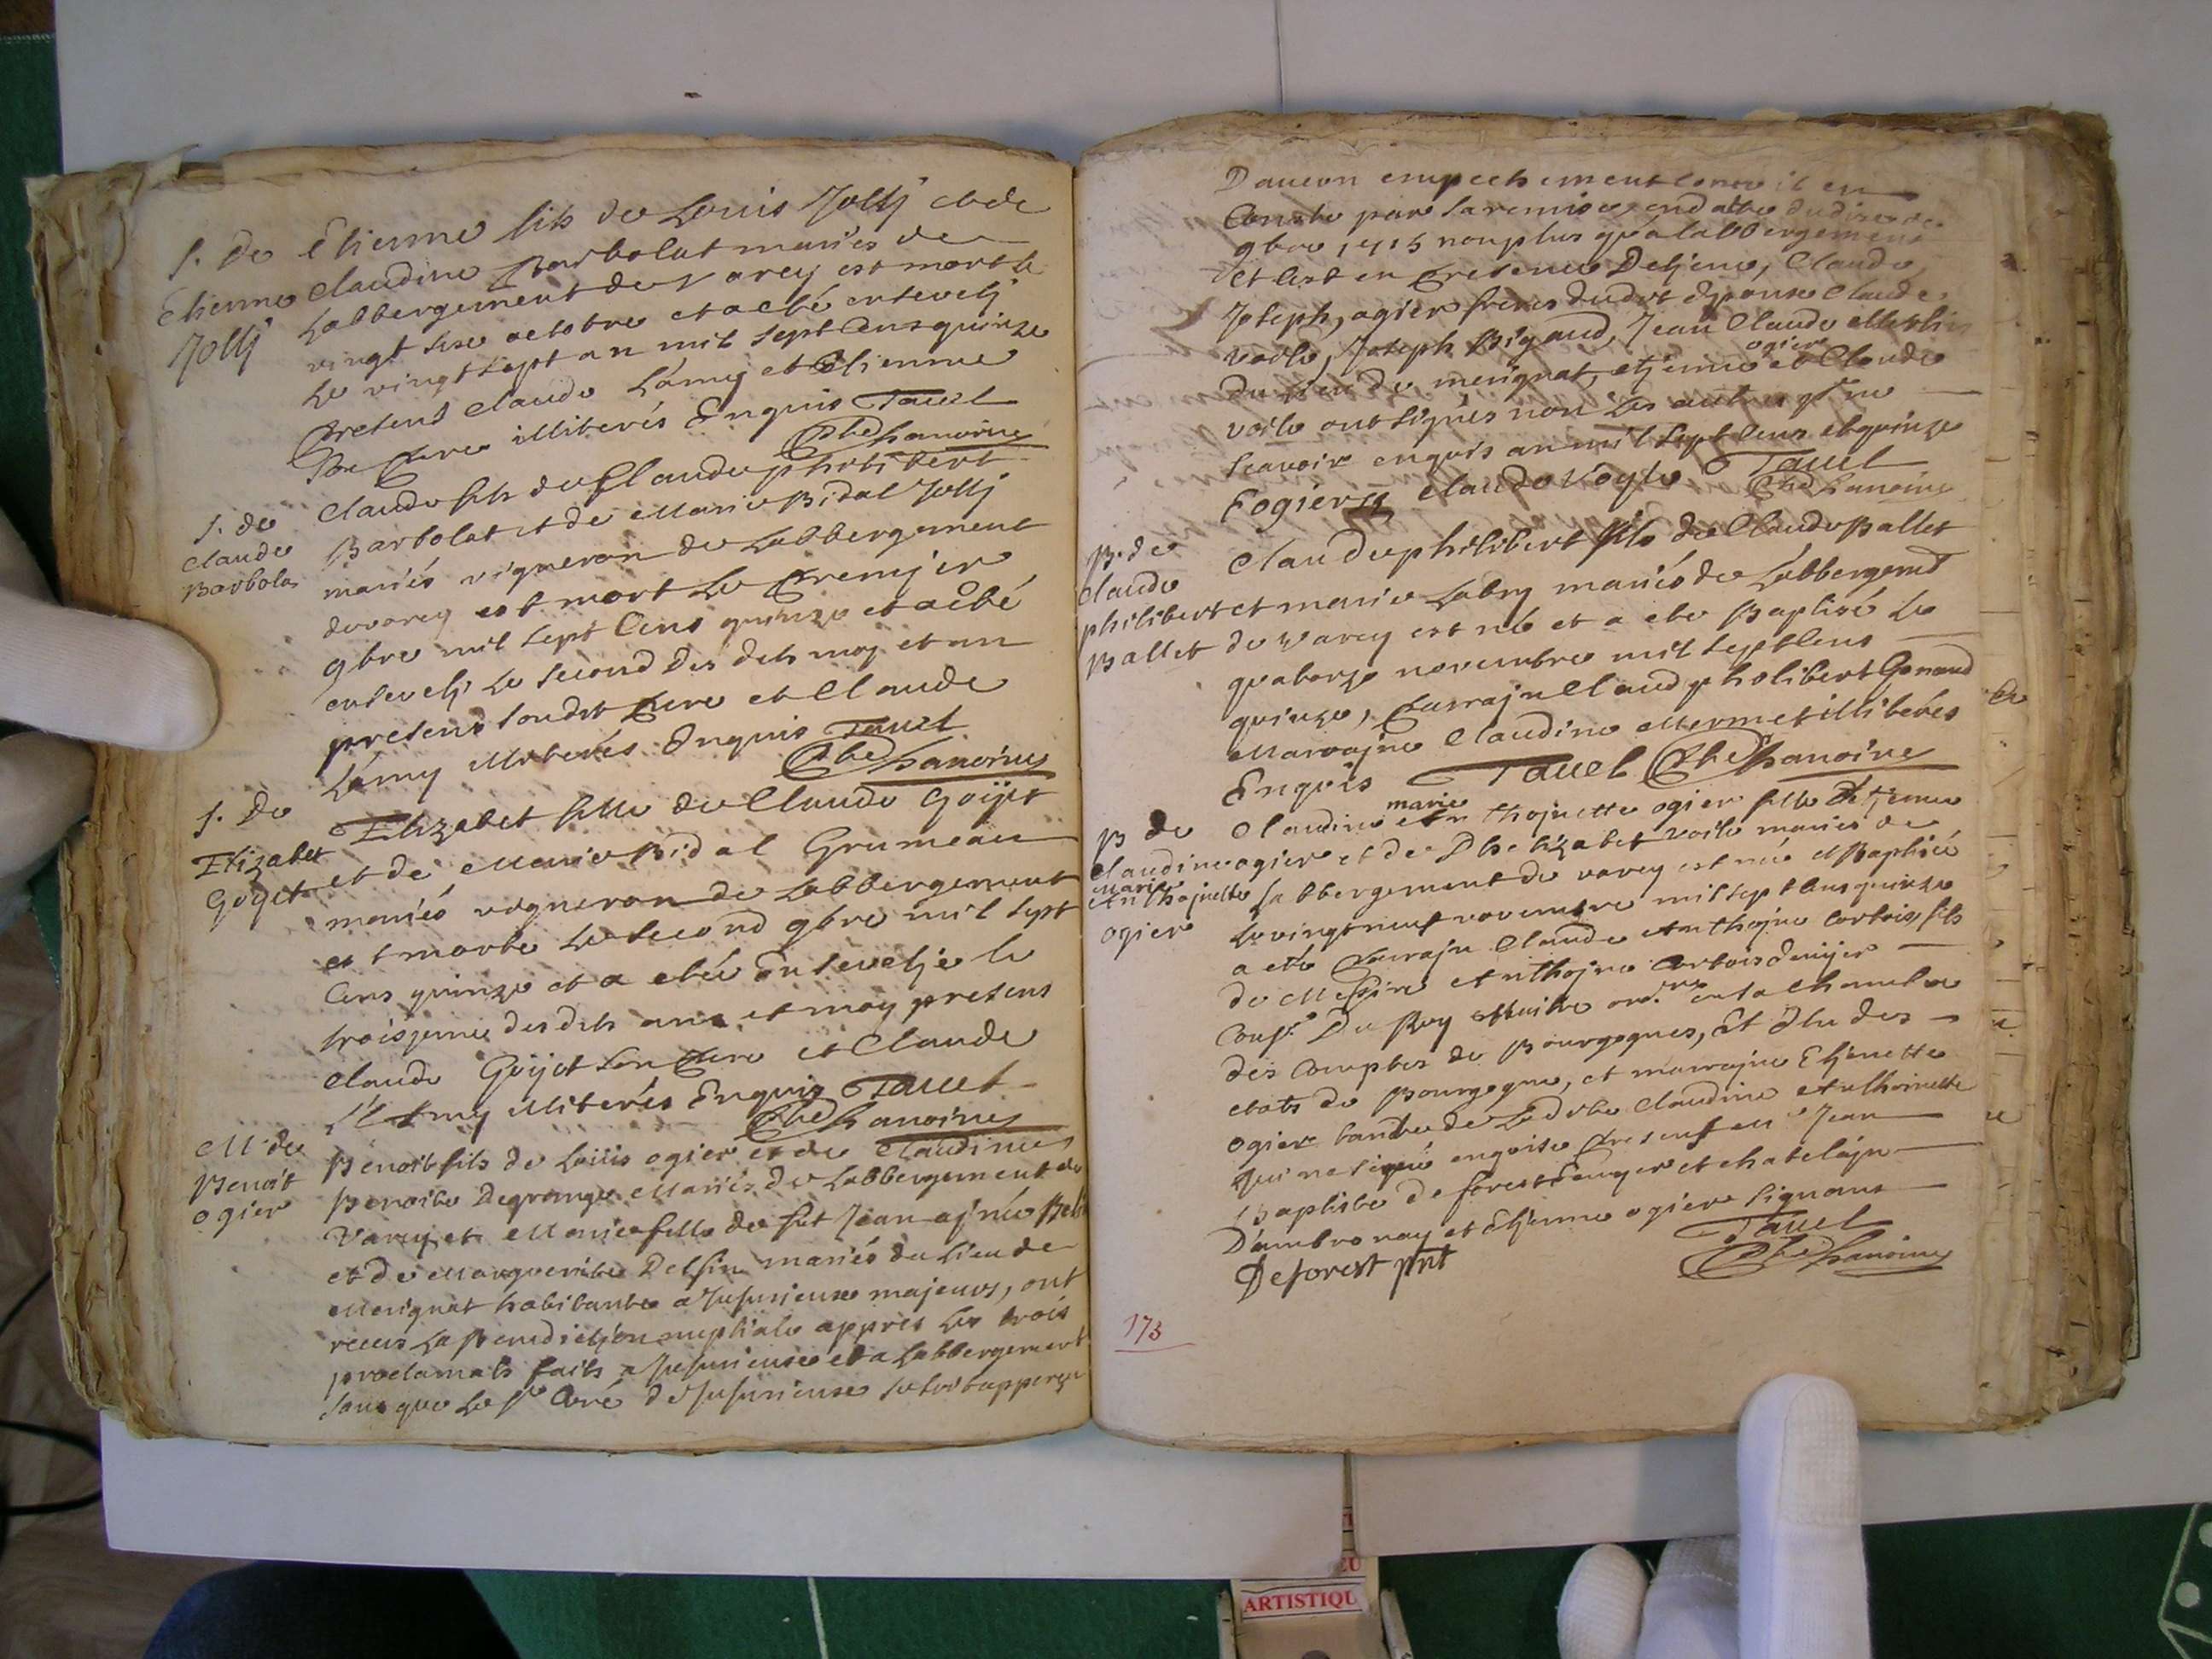 S. de
Etienne
Jollj
Etienne fils de Louis Jollj et de
Claudine Barbolat mariés de
Labbergement de Varey est mort le
vingt sixe octobre et a eté ensevelj
le vingt sept an mil sept cens quinze
presens Claude Lámy et Etienne
illiterés Enquis Tavel
Pbre Chanoine
S. de
Claude
Barbolat
Claude fils de Claude philibert
Barbolat et de Marie Bidal Jollj
mariés vigneron de Labbergement
de varey est mort le premjer
9bre mil sept Cens quinze et a eté
ensevelj le second des dits moy et an
presens sondit pere et Claude
Lámy illiterés Enquis Tavel
Pbre Chanoine
S. De
Elizabet
Goyet
Elizabet fille de Claude Goÿet
et de Marie Bidal Grumeau
mariés vigneron de Labbergement
est morte le second 9bre mil sept
Cens quinze et a etéé Ensevelje le
troisjeme des dits ans et moy presens
Claude Goÿet son pere et Claude
Lámy illiterés Enquis Tavel
Pbre Chanoine
M. de
Benoit
ogier
Benoit fils de Loüis ogier et de Claudine
Benoite Degrange Mariés de Labbergement de
Varey et Marie fille de fut Jean ajnée
et de Marguerite Delfin mariés du Lieu de
Merignat habitante a Jusurieux majeurs, ont
receus La Benedictjon nuptiale apprés les trois
proclamats faits a Jusurieux et a Labbergement
sans que Le Sr Curé de Jusurieux se soit apperçu
D'aucun empechement comme il en
Conste par la remise en datte du dixe de
9bre 1715 nonplus qu'a labbergement
et cest en presence Detjene, Claude,
Joseph, ogier freres dudit Epoux Claude
voile, Joseph Rigaud, Jean Claude Merlin
du Lieu de merignat, etjenne ogier et Claude
voile ont signés non les autres pr ne
scavoir enquis an mil sept cens et quinze
Eogier Claude Vöyle Tavel
Pbre Chanoine
B. de
Claude
philibert
Ballet
Claude philibert fils de Claude Ballet
et marie Labry mariés de Labbergemt
de Varey est né et a ete Baptisé le
quatorze novembre mil sept cens
quinze, parrajn Claud philibert Gonand
Marrajne Claudine Mermet illiterés
Enquis Tavel Pbre Chanoine
B de
Claudine
Marie
Anthojnette
ogier
Claudine marie Anthojnette ogier fille d'Etjenne
ogier et de Dlle Elizabet voile mariés de
Labbergement de varey est née et Baptiséé
le vingt neuf novembre mil sept cens quinze
a eté parrajn Claude Anthojne Cortois fils
de Messire Anthojne Cortois Ecuÿer
Consr. Du Roy Maitre ordre en sa chambre
des Comptes de Bourgognes, Et Elu des
etats de Bourgogne, et marrajne Etjenette
ogier tante de La dite Claudine Anthoinette
qui na signé enquise presens Jean
Baptiste deforest Ecuyer et chatelájn
D'ambronay et Etjenne ogier signans
Tavel
Pbre Chanoine
Deforest pnt
173
ARTISTIQU